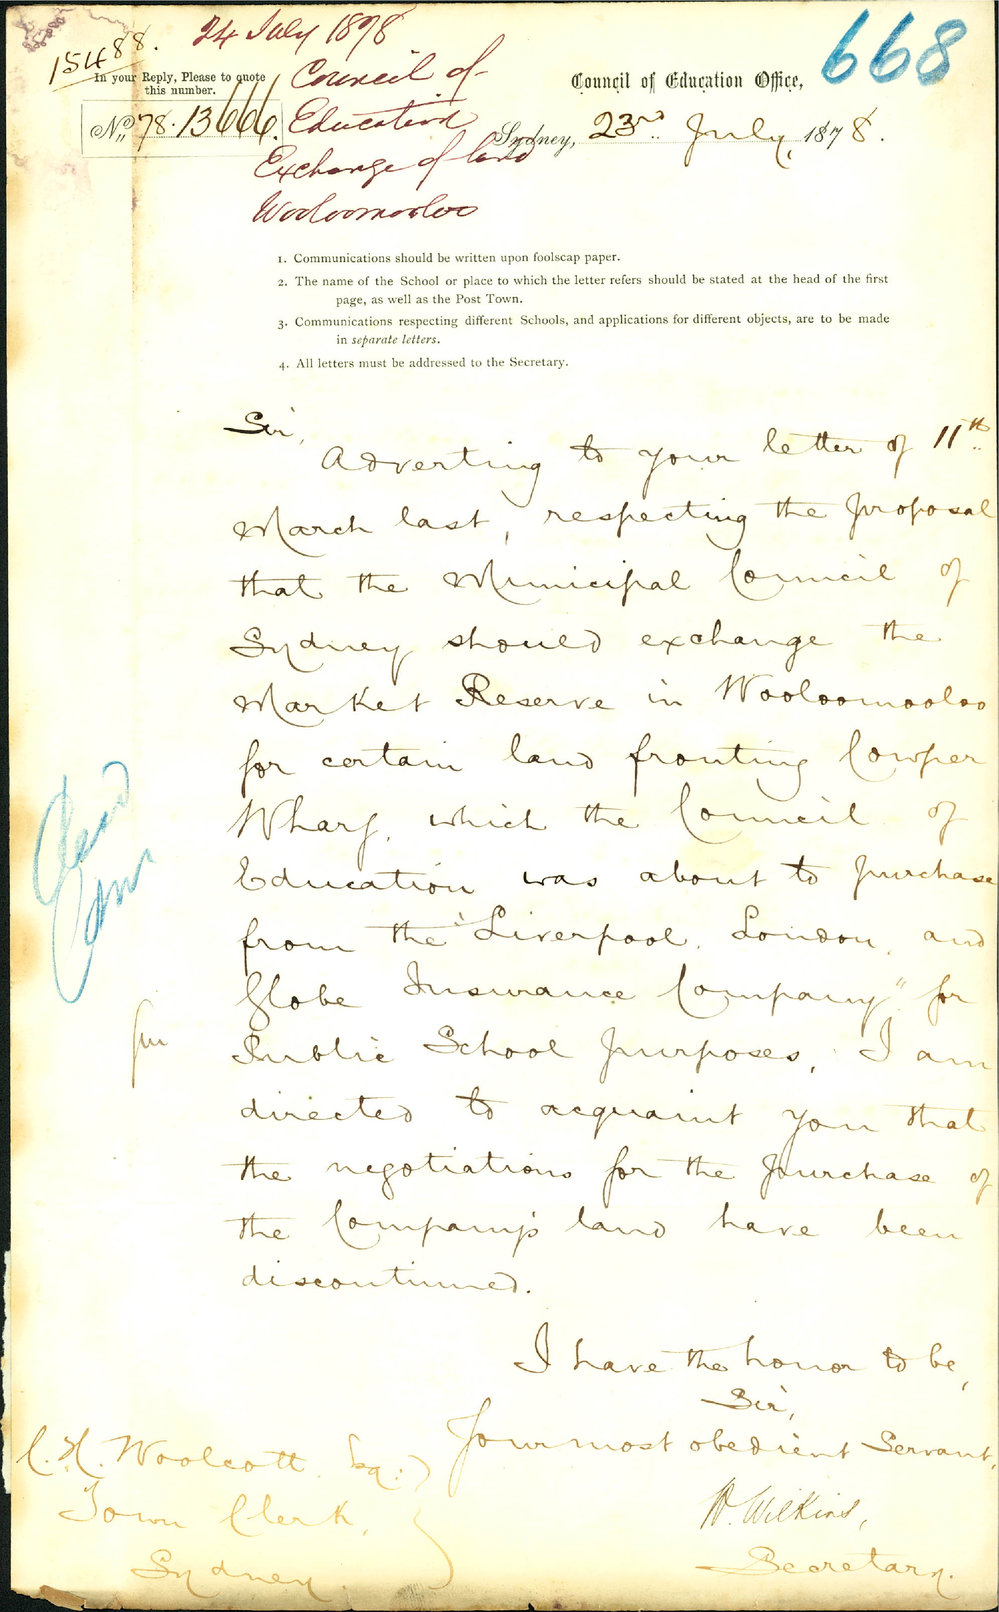 15488.
24 July 1878
668
In your Reply, Please to quote
this number.
No. 78.13666.
Council of
Education
Exchange of land
Wooloomooloo
Council of Education Office,
Sydney, 23rd July, 1878.
1. Communications should be written upon foolscap paper.
2. The name of the School or place to which the letter refers should be stated at the head of the first
page, as well as the Post Town.
3. Communications respecting different Schools, and applications for different objects, are to be made
in separate letters.
4. All letters must be addressed to the Secretary.
Sir,
Adverting to your letter of 11th
March last, respecting the proposal
that the Municipal Council of
Sydney should exchange the
Market Reserve in Wooloomooloo
for certain land fronting Cowper
Wharf, which the Council of
Education was about to purchase
from the "Liverpool, London, and
Globe Insurance Company" for
Public School purposes, I am
directed to acquaint you that
the negotiations for the purchase of
the Company's land have been
discontinued.
I have the honor to be,
Sir,
Your most obedient Servant,
W. Wilkins,
Secretary.
C. H. Woolcott Esq:
Town Clerk,
Sydney